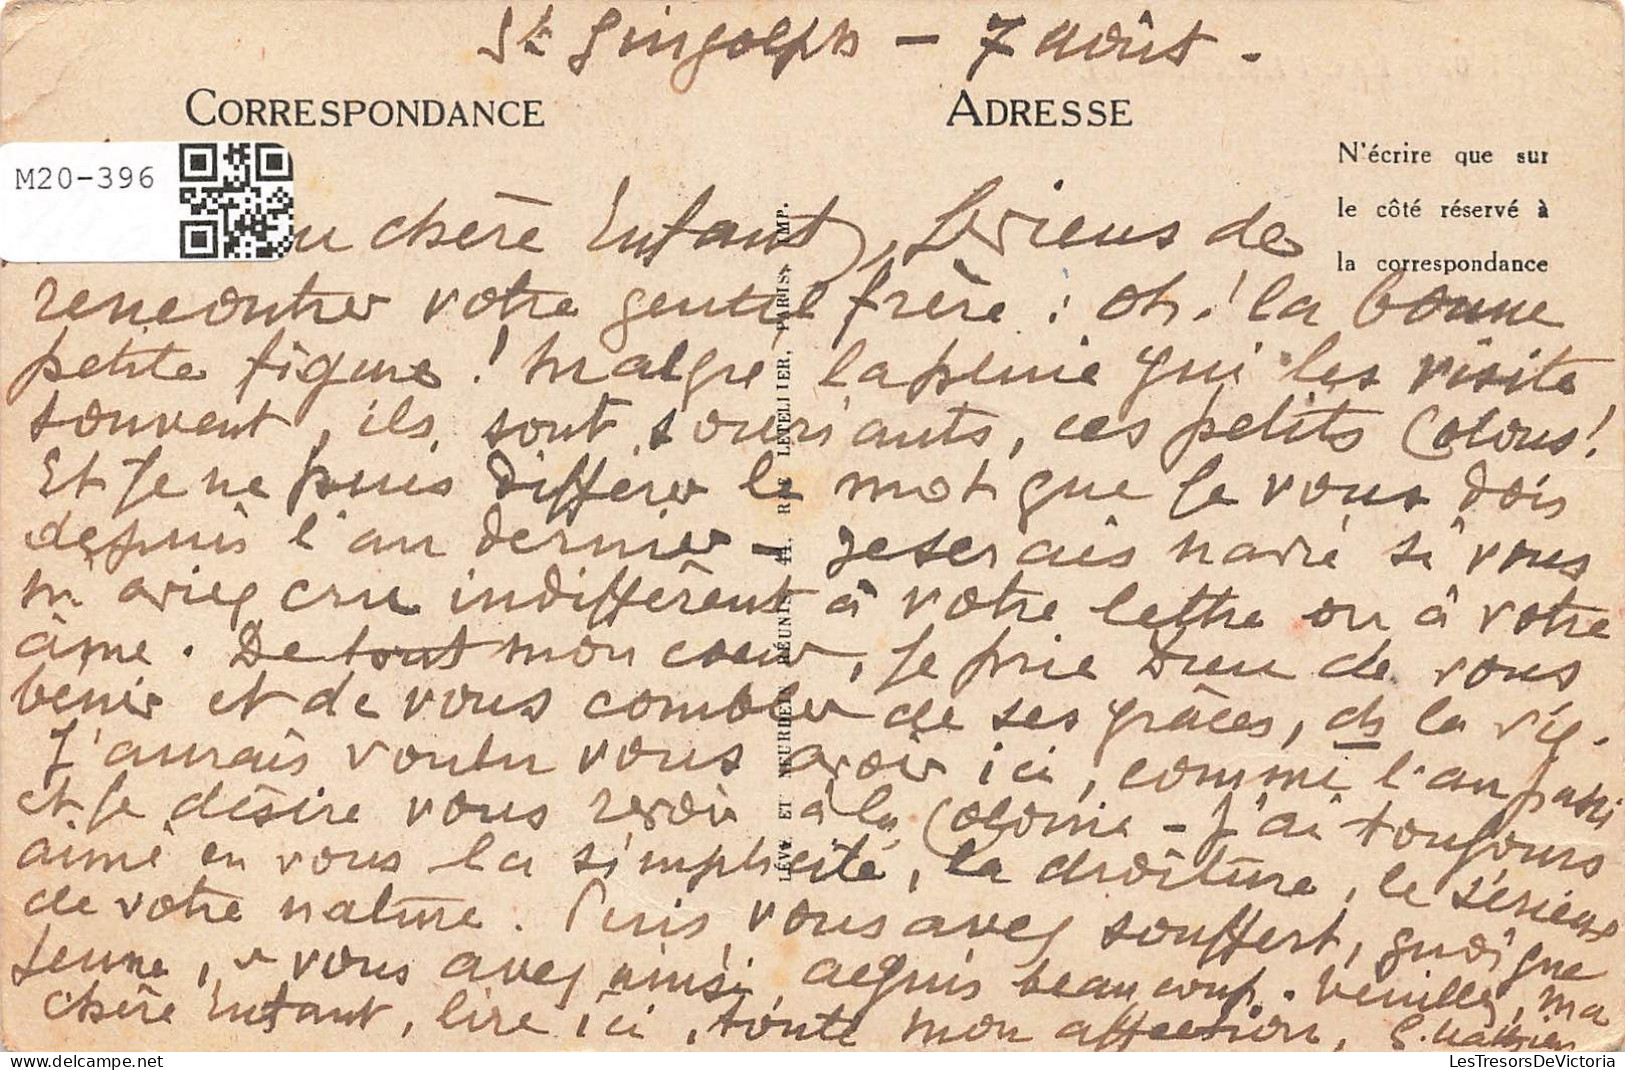 St Gingolph - 7 août -
CORRESPONDANCE
ADRESSE
M20-396
N'écrire que sur
le côté réservé à
la correspondance
chère Enfant, Je viens de
rencontrer votre gentil frère : oh ! la bonne
petite figure ! Malgré la pluie qui les visite
souvent, ils sont souriants, ces petits Colons !
Et je ne puis différer le mot que je vous dois
depuis l'an dernier - Je serais navré si vous
m'aviez cru indifférent à votre lettre ou à votre
âme. De tout mon coeur, je prie Dieu de vous
bénir et de vous combler de ses grâces, ds la vie.
J'aurais voulu vous avoir ici, comme l'an passé
et je désire vous revoir à la Colonie - J'ai toujours
aimé en vous la simplicité, la droiture, le sérieux
de votre nature. Puis, vous avez souffert, quoique
jeune, vous avez ainsi acquis beaucoup. Veuillez, ma
chère Enfant, lire ici, toute mon affection,
LÉVY ET NEURDEIN RÉUNIS, 44, RUE LETELLIER, PARIS. IMP.
LesTresorsDeVictoria